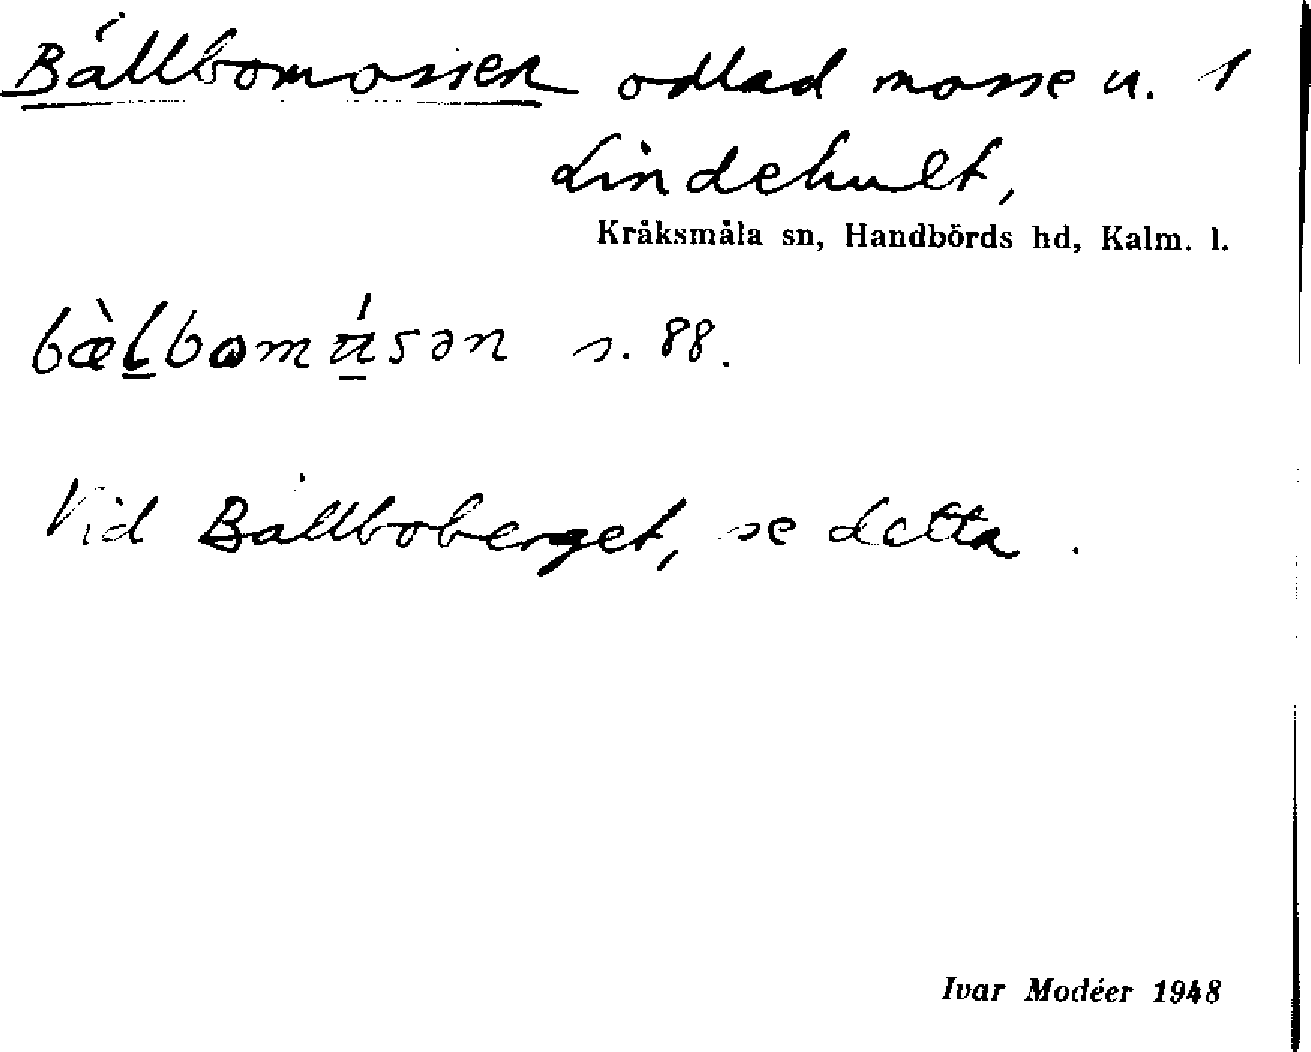 Bållbomossen odlad mosse u. 1
Lindehult,
Kråksmåla sn, Handbörds hd, Kalm. l.
s. 88.
Vid Bållboberget, se detta.
Ivar Modéer 1948